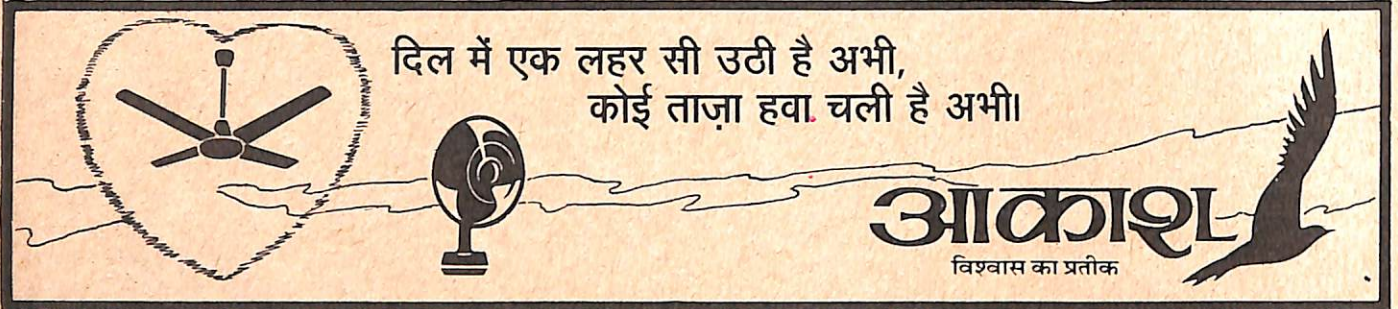 दिल में एक लहर सी उठी है अभी,
कोई ताज़ा हवा चली है अभी।
आकाश
विश्वास का प्रतीक